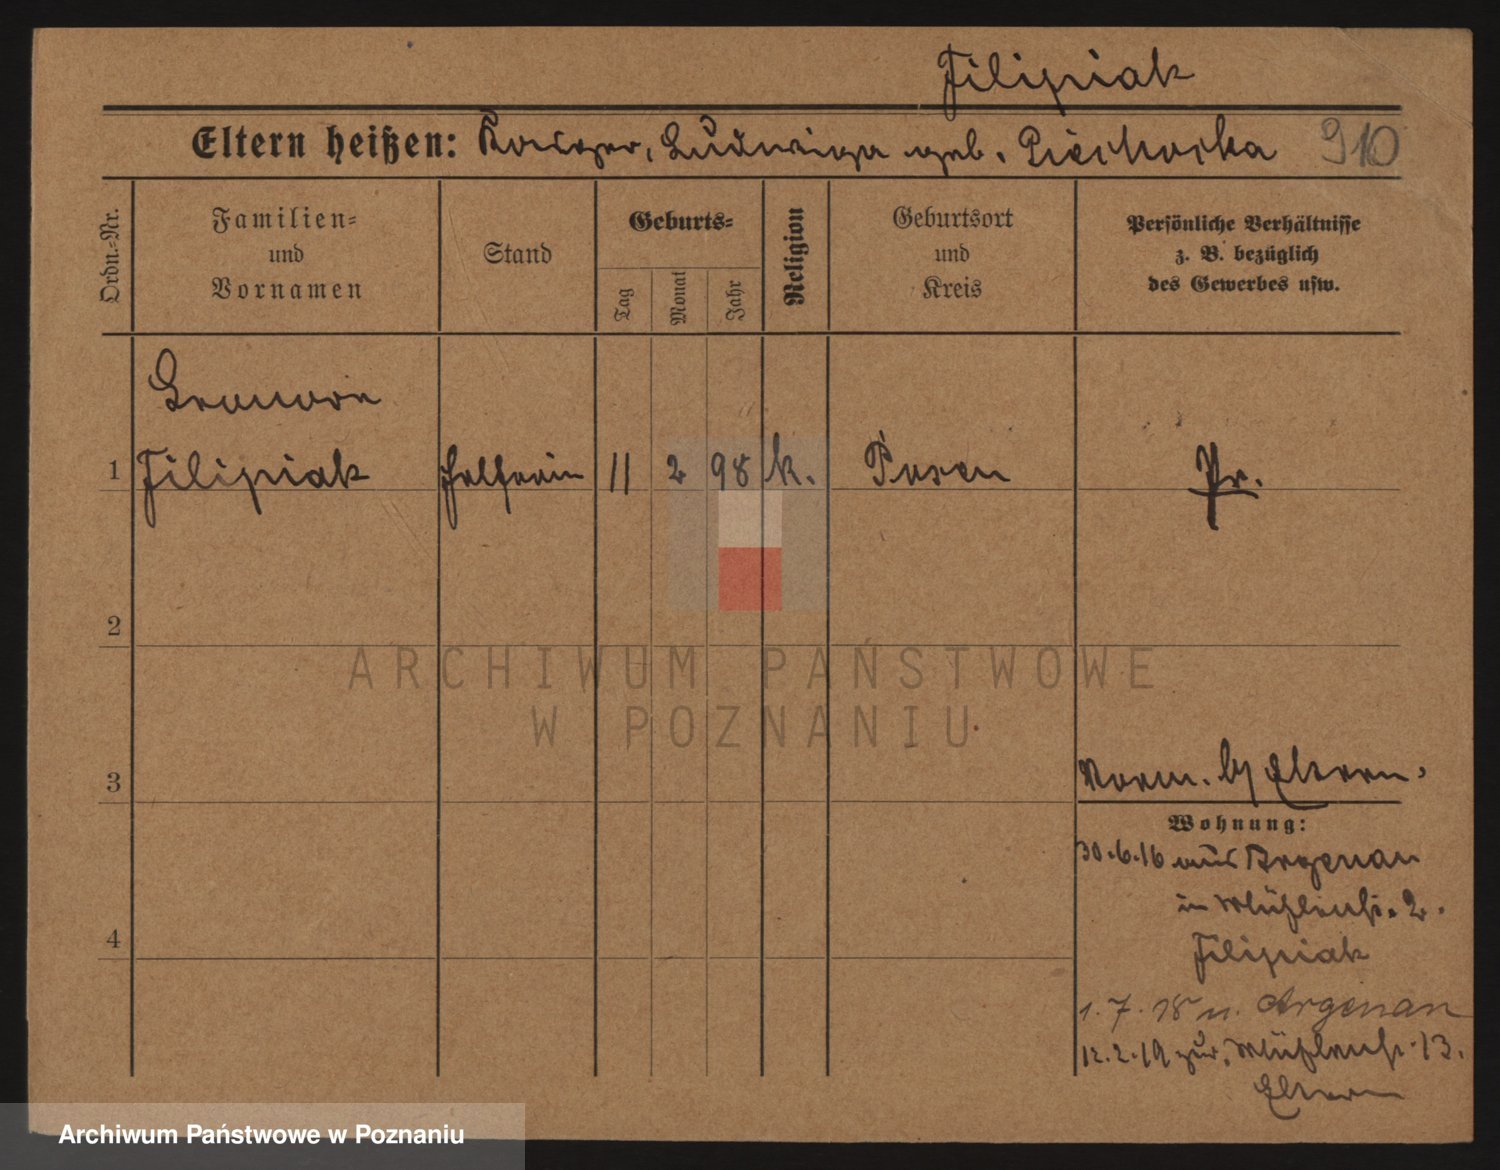 Filipiak
Eltern heißen: Kasper, Ludwiga geb. Piechocka 910
Ordn.-Nr.
Familien- und Vornamen
Stand
Geburts-
Tag
Monat
Jahr
Religion
Geburtsort und Kreis
Persönliche Verhältnisse z. B. bezüglich des Gewerbes usw.
Leonore
1 Filipiak 11 2 98 k. Posen Pr.
2
3
Vorm. b/ Eltern.
Wohnung:
30.6.16 aus Argenau
4 in Mühlenstr. 2.
Filipiak
1.7.18 n. Argenau
12.2.19 zur. Mühlenstr. 13.
Eltern
ARCHIWUM PAŃSTWOWE
W POZNANIU
Archiwum Państwowe w Poznaniu